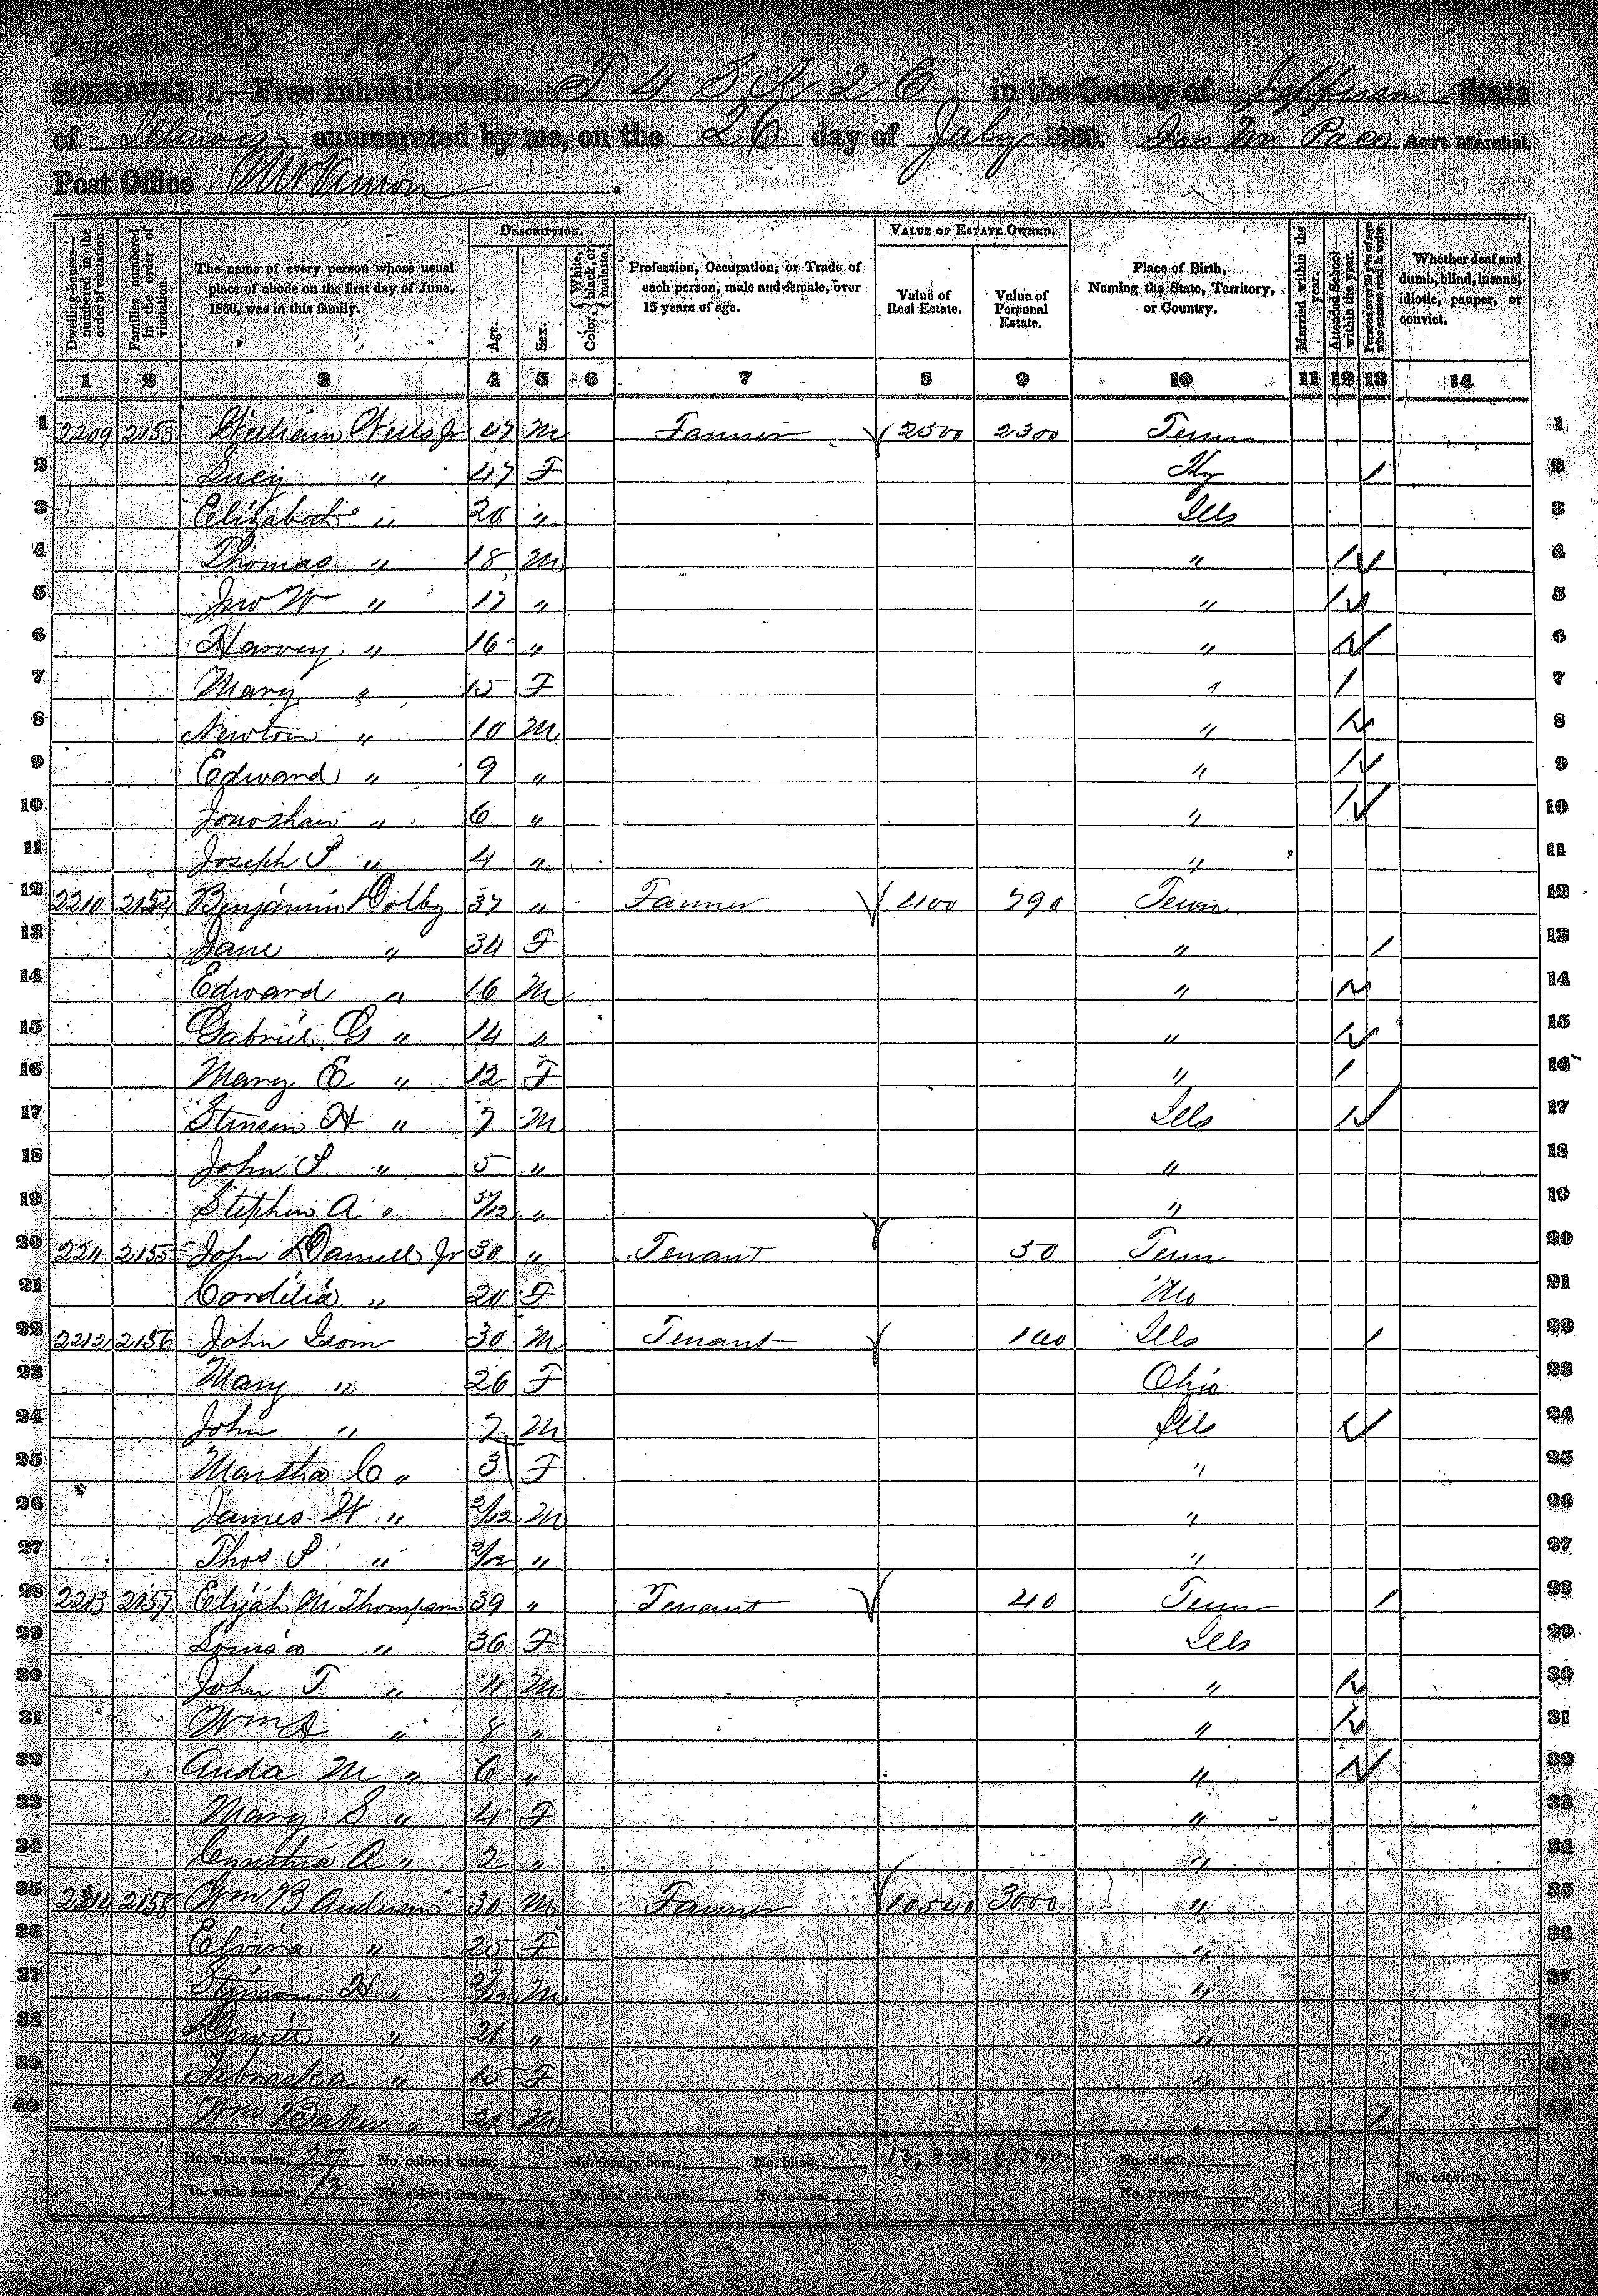 Page No. 307 1095
SCHEDULE 1.—Free Inhabitants in T 4 S R 2 E in the County of Jefferson State
of Illinois enumerated by me, on the 26 day of July 1860. Jas M Pace Ass't Marshal.
Post Office Mt Vernon.
Dwelling-houses—numbered in the order of visitation. Families numbered in the order of visitation. The name of every person whose usual place of abode on the first day of June, 1860, was in this family. DESCRIPTION. Age. Sex. Color, { White, black, or mulatto. Profession, Occupation, or Trade of each person, male and female, over 15 years of age. VALUE OF ESTATE OWNED. Value of Real Estate. Value of Personal Estate. Place of Birth, Naming the State, Territory, or Country. Married within the year. Attended School within the year. Persons over 20 y'rs of age who cannot read & write. Whether deaf and dumb, blind, insane, idiotic, pauper, or convict.
1 2 3 4 5 6 7 8 9 10 11 12 13 14
1 2209 2153 William Wells Jr 47 M Farmer 2500 2300 Tenn 1
2 Lucy " 47 F Ky / 2
3 Elizabeth " 20 " Ills 3
4 Thomas " 18 M " / 4
5 Jno W " 17 " " / 5
6 Harvey " 16 " " / 6
7 Mary " 15 F " / 7
8 Newton " 10 M " / 8
9 Edward " 9 " " / 9
10 Jonothan " 6 " " / 10
11 Joseph S " 4 " " 11
12 2210 2154 Benjamin Dolby 37 " Farmer 400 790 Tenn 12
13 Jane " 34 F " / 13
14 Edward " 16 M " / 14
15 Gabriel G " 14 " " / 15
16 Mary E " 12 F " / 16
17 Stinson H " 7 M Ills / 17
18 John S " 5 " " 18
19 Stephen A " /12 " " 19
20 2211 2155 John Darnell Jr 30 " Tenant 50 Tenn 20
21 Cordelia " 20 F Mo 21
22 2212 2156 John Isom 30 M Tenant 100 Ills / 22
23 Mary " 26 F Ohio 23
24 John " 7 M Ills / 24
25 Martha C " 3 F " 25
26 James W " 2/12 M " 26
27 Thos P " 2/12 " " 27
28 2213 2157 Elijah M Thompson 39 " Tenant 40 Tenn / 28
29 Louisa " 36 F Ills 29
30 John T " 11 M " / 30
31 Wm A " 8 " " / 31
32 Anda M " 6 " " / 32
33 Mary S " 4 F " 33
34 Cynthia A " 2 " " 34
35 2214 2158 Wm B Anderson 30 M Farmer 10540 3000 " 35
36 Elvina " 25 F " 36
37 Stinson H " /12 M " 37
38 Dewitt " 21 " " 38
39 Nebraska " 15 F " 39
40 Wm Baker " 21 M " / 40
No. white males, 27 No. colored males, No. foreign born, No. blind, 13,440 6,340 No. idiotic,
No. white females, 13 No. colored females, No. deaf and dumb, No. insane, No. paupers, No. convicts,
40